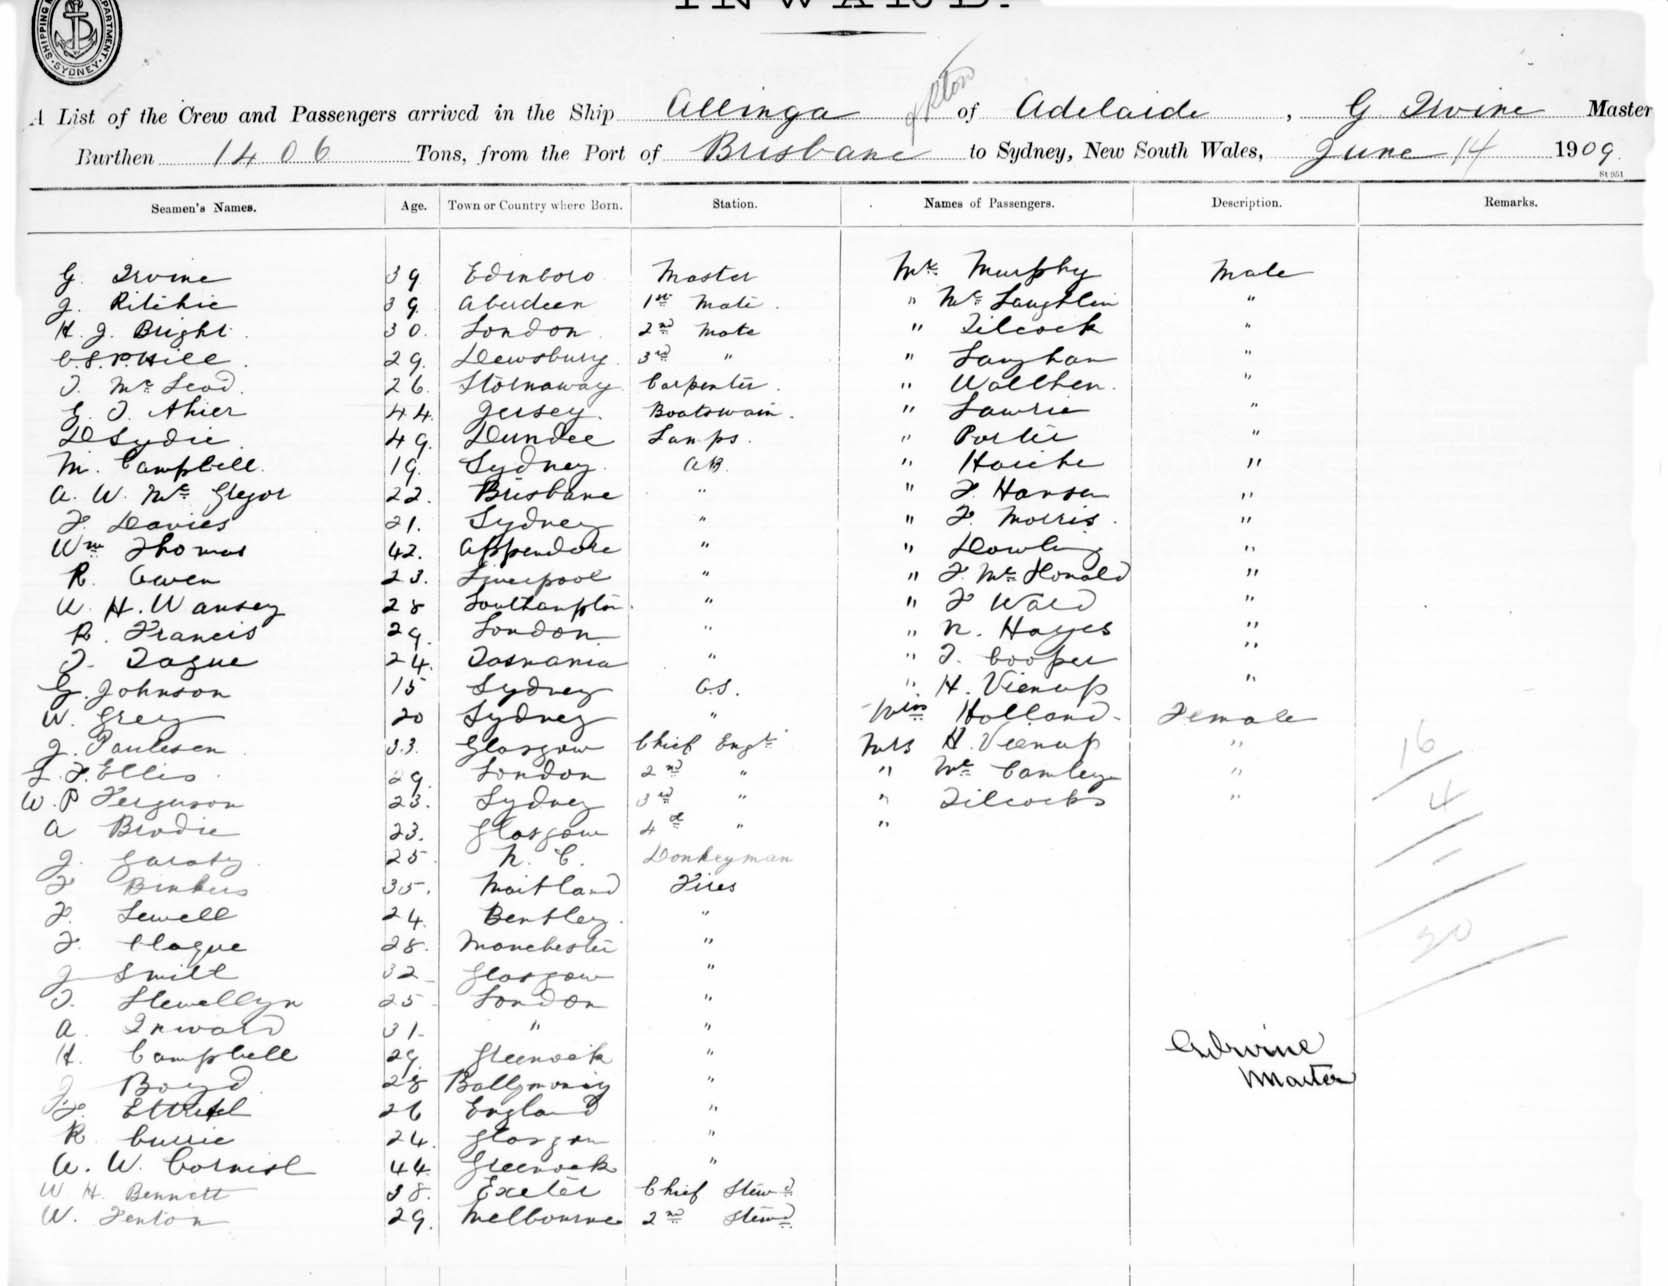 INWARD.
SHIPPING DEPARTMENT. SYDNEY.
A List of the Crew and Passengers arrived in the Ship Allinga of Adelaide, G Irvine Master
Burthen 1406 Tons, from the Port of Brisbane to Sydney, New South Wales, June 14 1909.
St 951
Seamen's Names. Age. Town or Country where Born. Station. Names of Passengers. Description. Remarks.
G Irvine 39 Edinboro Master Mr. Murphy Male
J. Ritchie 39. Aberdeen 1st Mate. " Mc Laughlin "
H. J. Bright. 30. London. 2nd Mate " Tilcock "
Hill. 29. Dewsbury. 3rd " " Laughan "
J. Mc Leod. 26. Stornaway Carpenter. " "
G. J. Ahier 44. Jersey. Boatswain. " Lawrie "
D Lydie. 49. Dundee Lamps. " Porter "
M. Campbell. 19. Sydney. AB. " "
A. W. Mc Gregor 22. Brisbane " " F. Hansen "
F. Davies 21. Sydney " " F. Morris. "
Wm Thomas 42. Appendore " " Dowling "
R. Owen 23. Liverpool " " F. Mc Donald "
W. H. Wansey 28 Southampton. " " F Ward "
R. Francis 29. London " " N. Hayes "
J. Tague 24. Tasmania " " J. Cooper "
G. Johnson 15 Sydney O.S. " H. Vienup "
W. Grey 20 Sydney " Miss Holland - Female
J. Paulesen 33. Glasgow Chief Engr Mrs H. Vienup "
L. F. Ellis. 29. London 2nd " " Mc Camley "
W. P Ferguson 23. Sydney 3rd " " Tilcocks "
A Brodie 23. Glasgow 4th " "
J. 25 N. C. Donkeyman
F 35. Maitland Fires
F. Sewell 24. Bentley. "
F. Hague 28. Manchester "
J Smith 32 Glasgow "
J. Llewellyn 25 London "
A. Inward 31. " "
H. Campbell 29. Greenock "
J Boyd. 28 Ballymoney "
F. 26 England "
R Currie 24. Glasgow "
A. W. Cornish 44. Greenock "
W H. Bennett 38. Exeter Chief Stewd
W. Fenton 29. Melbourne 2nd Stewd
16
4
20
G Irvine
Master